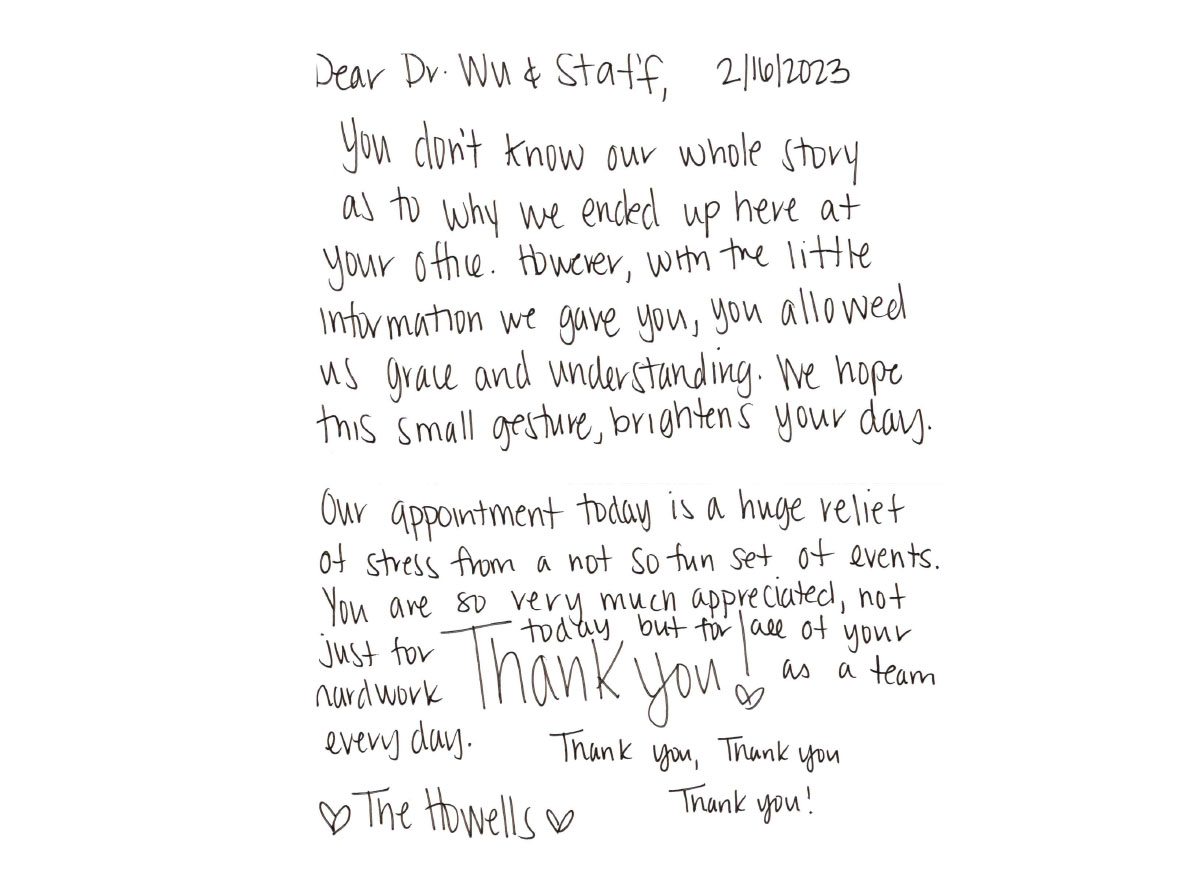 Dear Dr. Wu & Staff, 2/16/2023
You don't know our whole story
as to why we ended up here at
your office. However, with the little
information we gave you, you allowed
us grace and understanding. We hope
this small gesture, brightens your day.
Our appointment today is a huge relief
of stress from a not so fun set of events.
You are so very much appreciated, not
just for today, but for all of your
hardwork as a team
every day.
Thank you!
Thank you, Thank you
Thank you!
♡ The Howells ♡